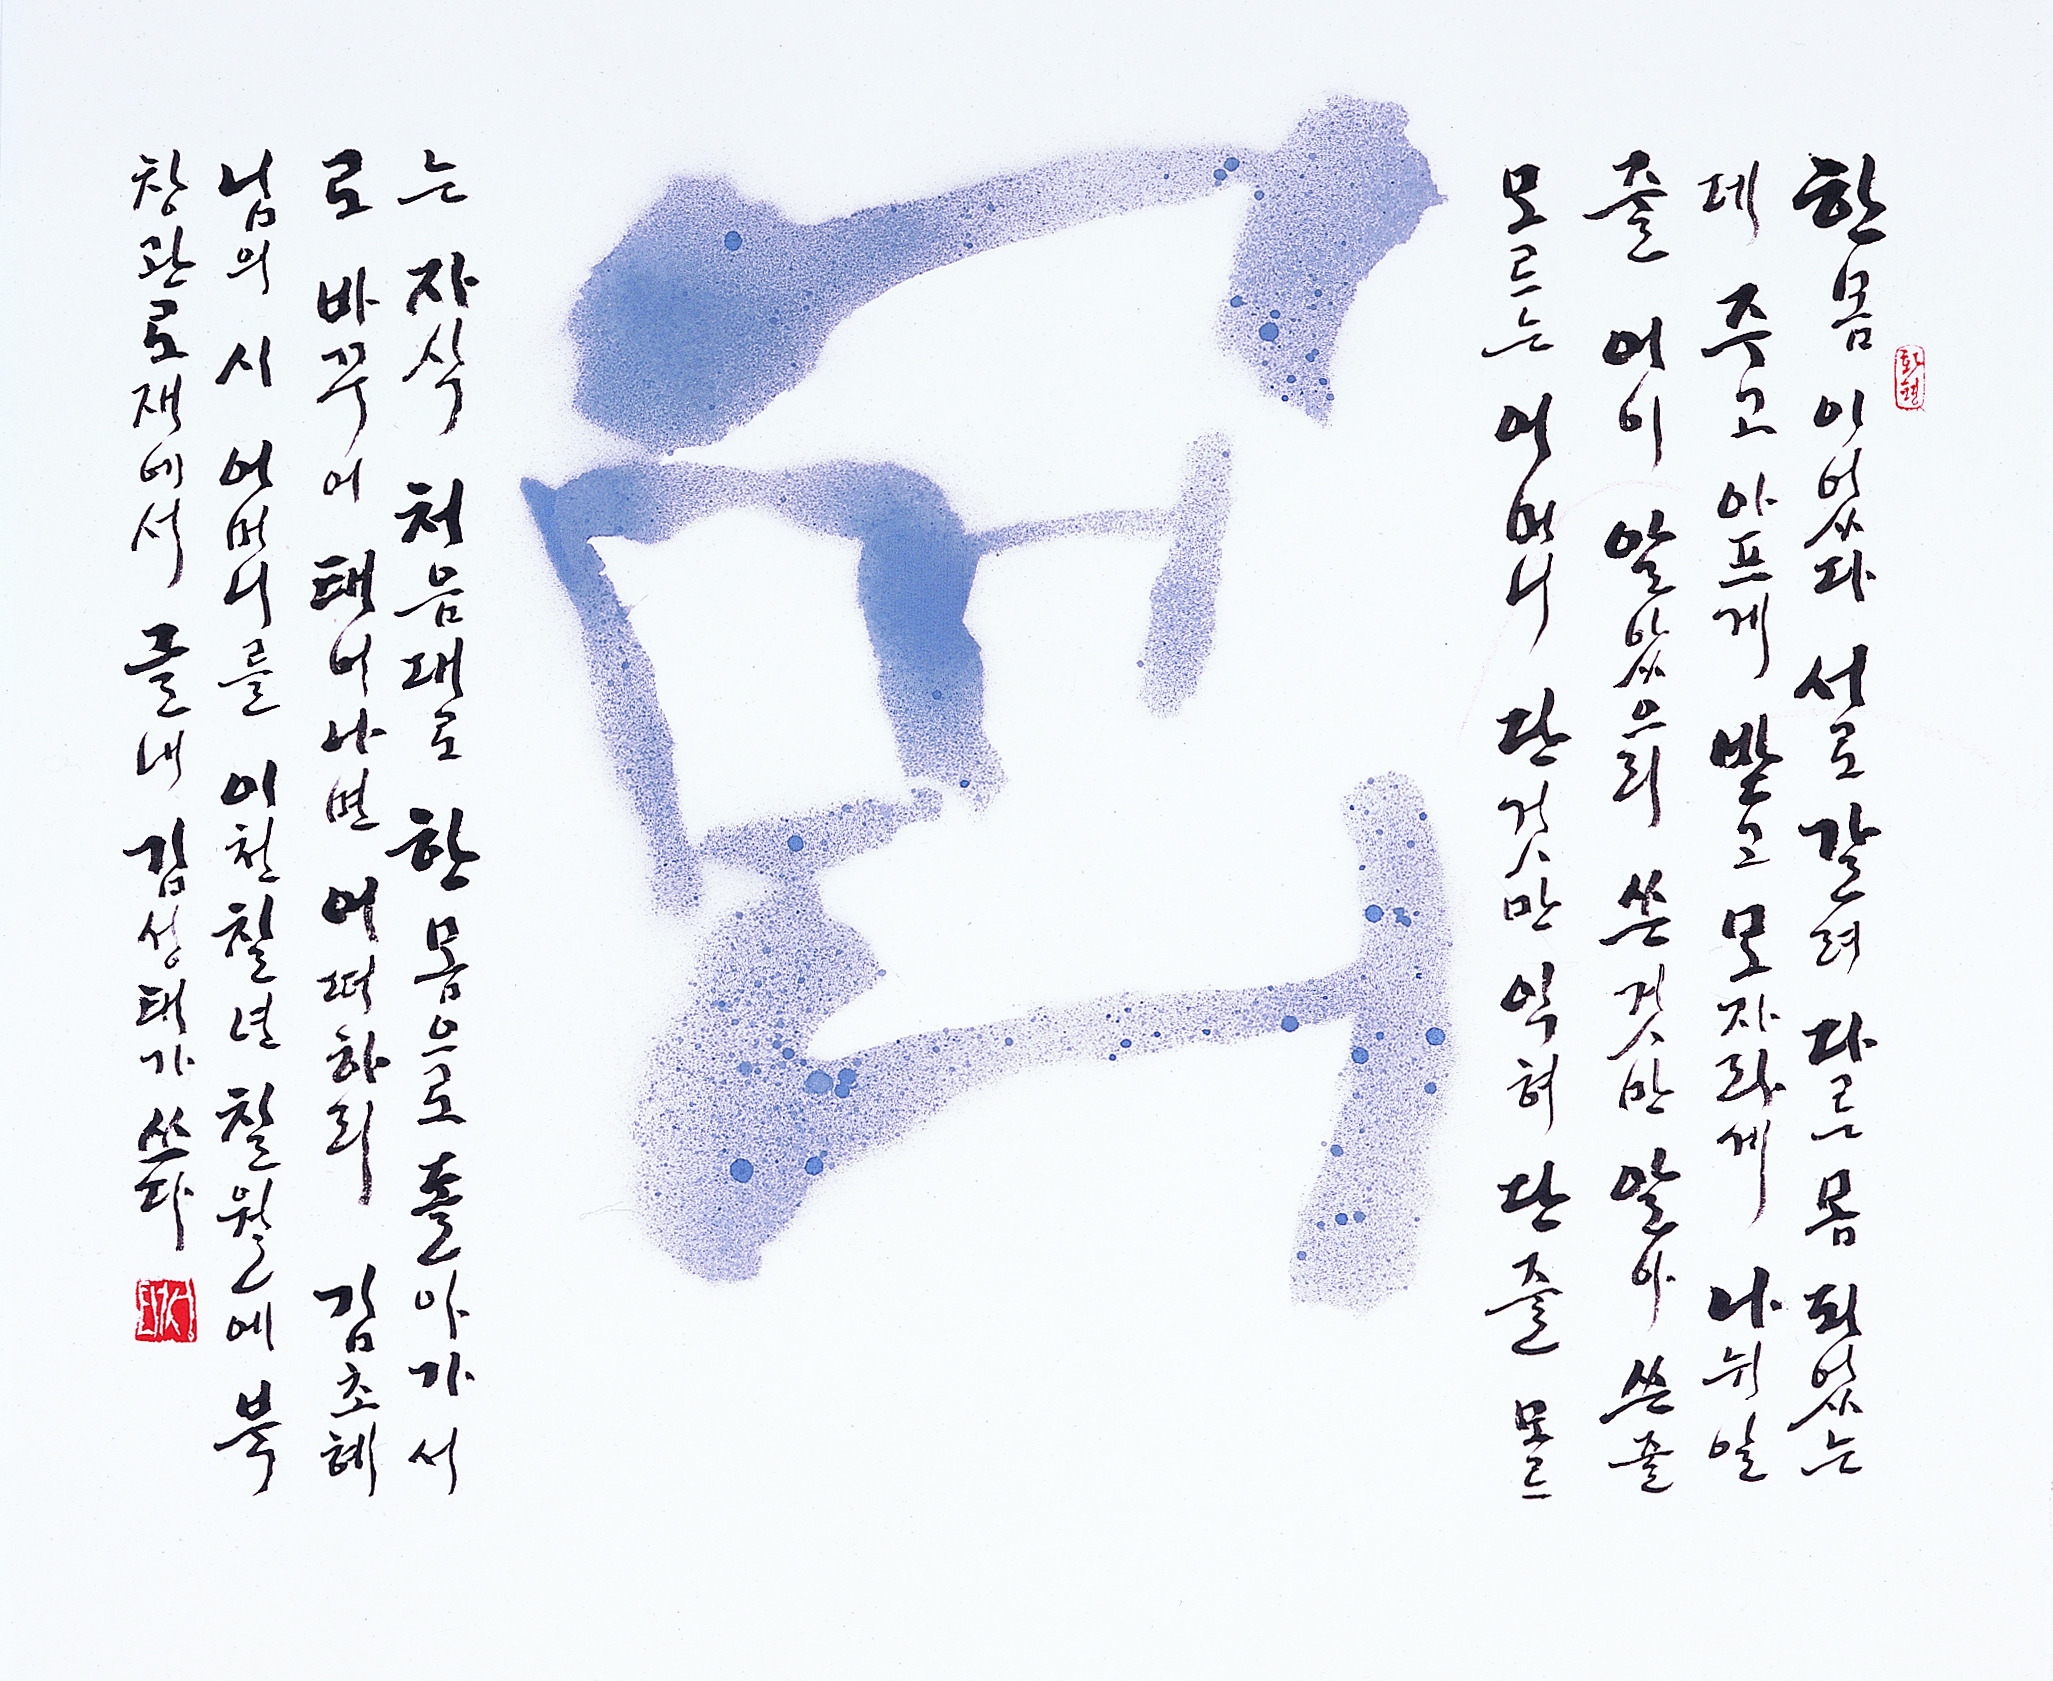 한몸 이었다 서로 갈려 다른 몸 되었는
데 주고 아프게 받고 모자라게 나뉘일
줄 어이 알았으리 쓴것만 알아 쓴줄
모르는 어머니 단것만 익혀 단줄 모르
는 자식 처음대로 한 몸으로 돌아가서
로 바꾸어 태어나면 어떠하리 김초혜
님의 시 어머니를 이천칠년 칠월에 북
창관로재에서 글내 김성태가 쓰다